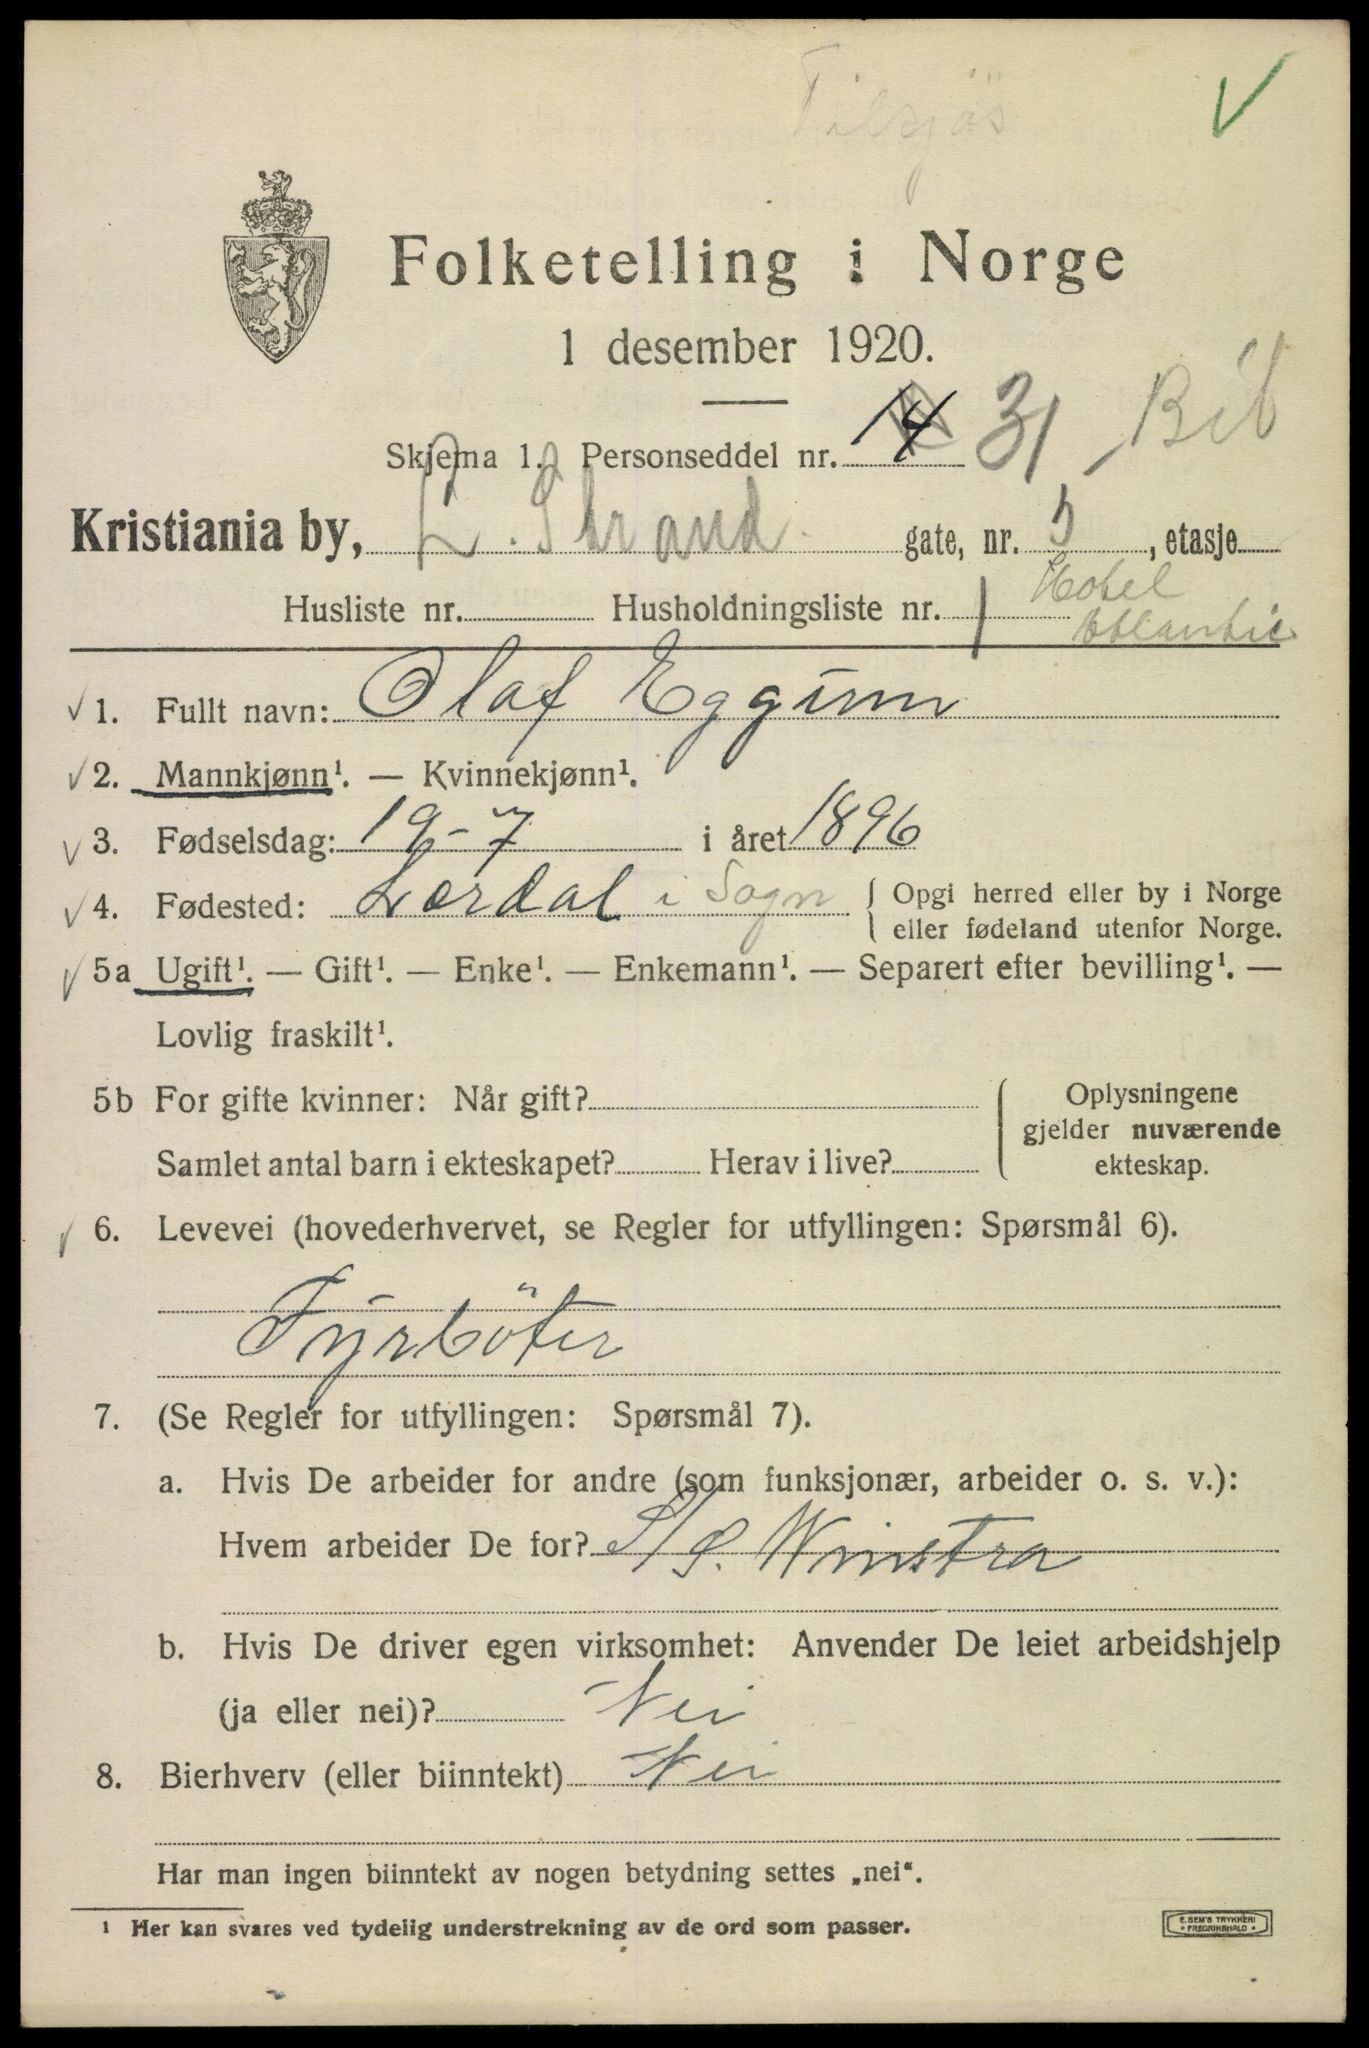 Tilsjös
Folketelling i Norge
1 desember 1920.
Skjema 1. Personseddel nr. 14 31 Bib
Kristiania by, L. Strand gate, nr. 5, etasje
Husliste nr. Husholdningsliste nr. 1 Hotel
Atlantic
1. Fullt navn: Olaf Eggum
2. Mannkjønn¹. — Kvinnekjønn¹.
3. Fødselsdag: 19-7 i året 1896
4. Fødested: Lærdal i Sogn Opgi herred eller by i Norge
eller fødeland utenfor Norge.
5a Ugift¹. — Gift¹. — Enke¹. — Enkemann¹. — Separert efter bevilling¹. —
Lovlig fraskilt¹.
5b For gifte kvinner: Når gift? Oplysningene
gjelder nuværende
Samlet antal barn i ekteskapet? Herav i live? ekteskap.
6. Levevei (hovederhvervet, se Regler for utfyllingen: Spørsmål 6).
Fyrböter
7. (Se Regler for utfyllingen: Spørsmål 7).
a. Hvis De arbeider for andre (som funksjonær, arbeider o. s. v.):
Hvem arbeider De for? S/S. Winstra
b. Hvis De driver egen virksomhet: Anvender De leiet arbeidshjelp
(ja eller nei)? Nei
8. Bierhverv (eller biinntekt) Nei
Har man ingen biinntekt av nogen betydning settes „nei“.
¹ Her kan svares ved tydelig understrekning av de ord som passer.
E. SEM'S TRYKKERI
FREDRIKSHALD